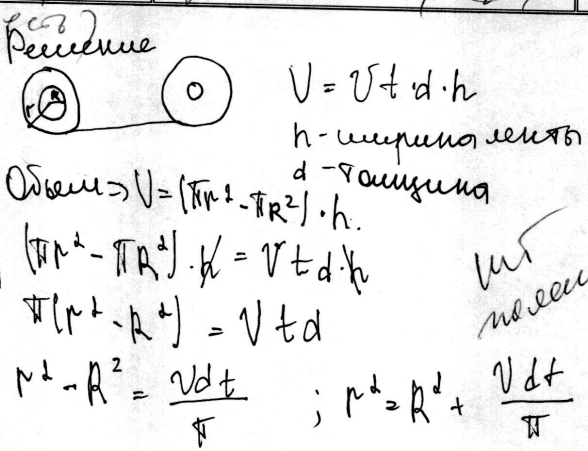 Решение
r R
V = vt·d·h
h - ширина ленты
d - толщина
Объем ⇒ V = (πr² - πR²)·h.
(πr² - πR²)·h = v t d·h
π(r² - R²) = v t d
r² - R² = vdt/π ; r² = R² + vdt/π